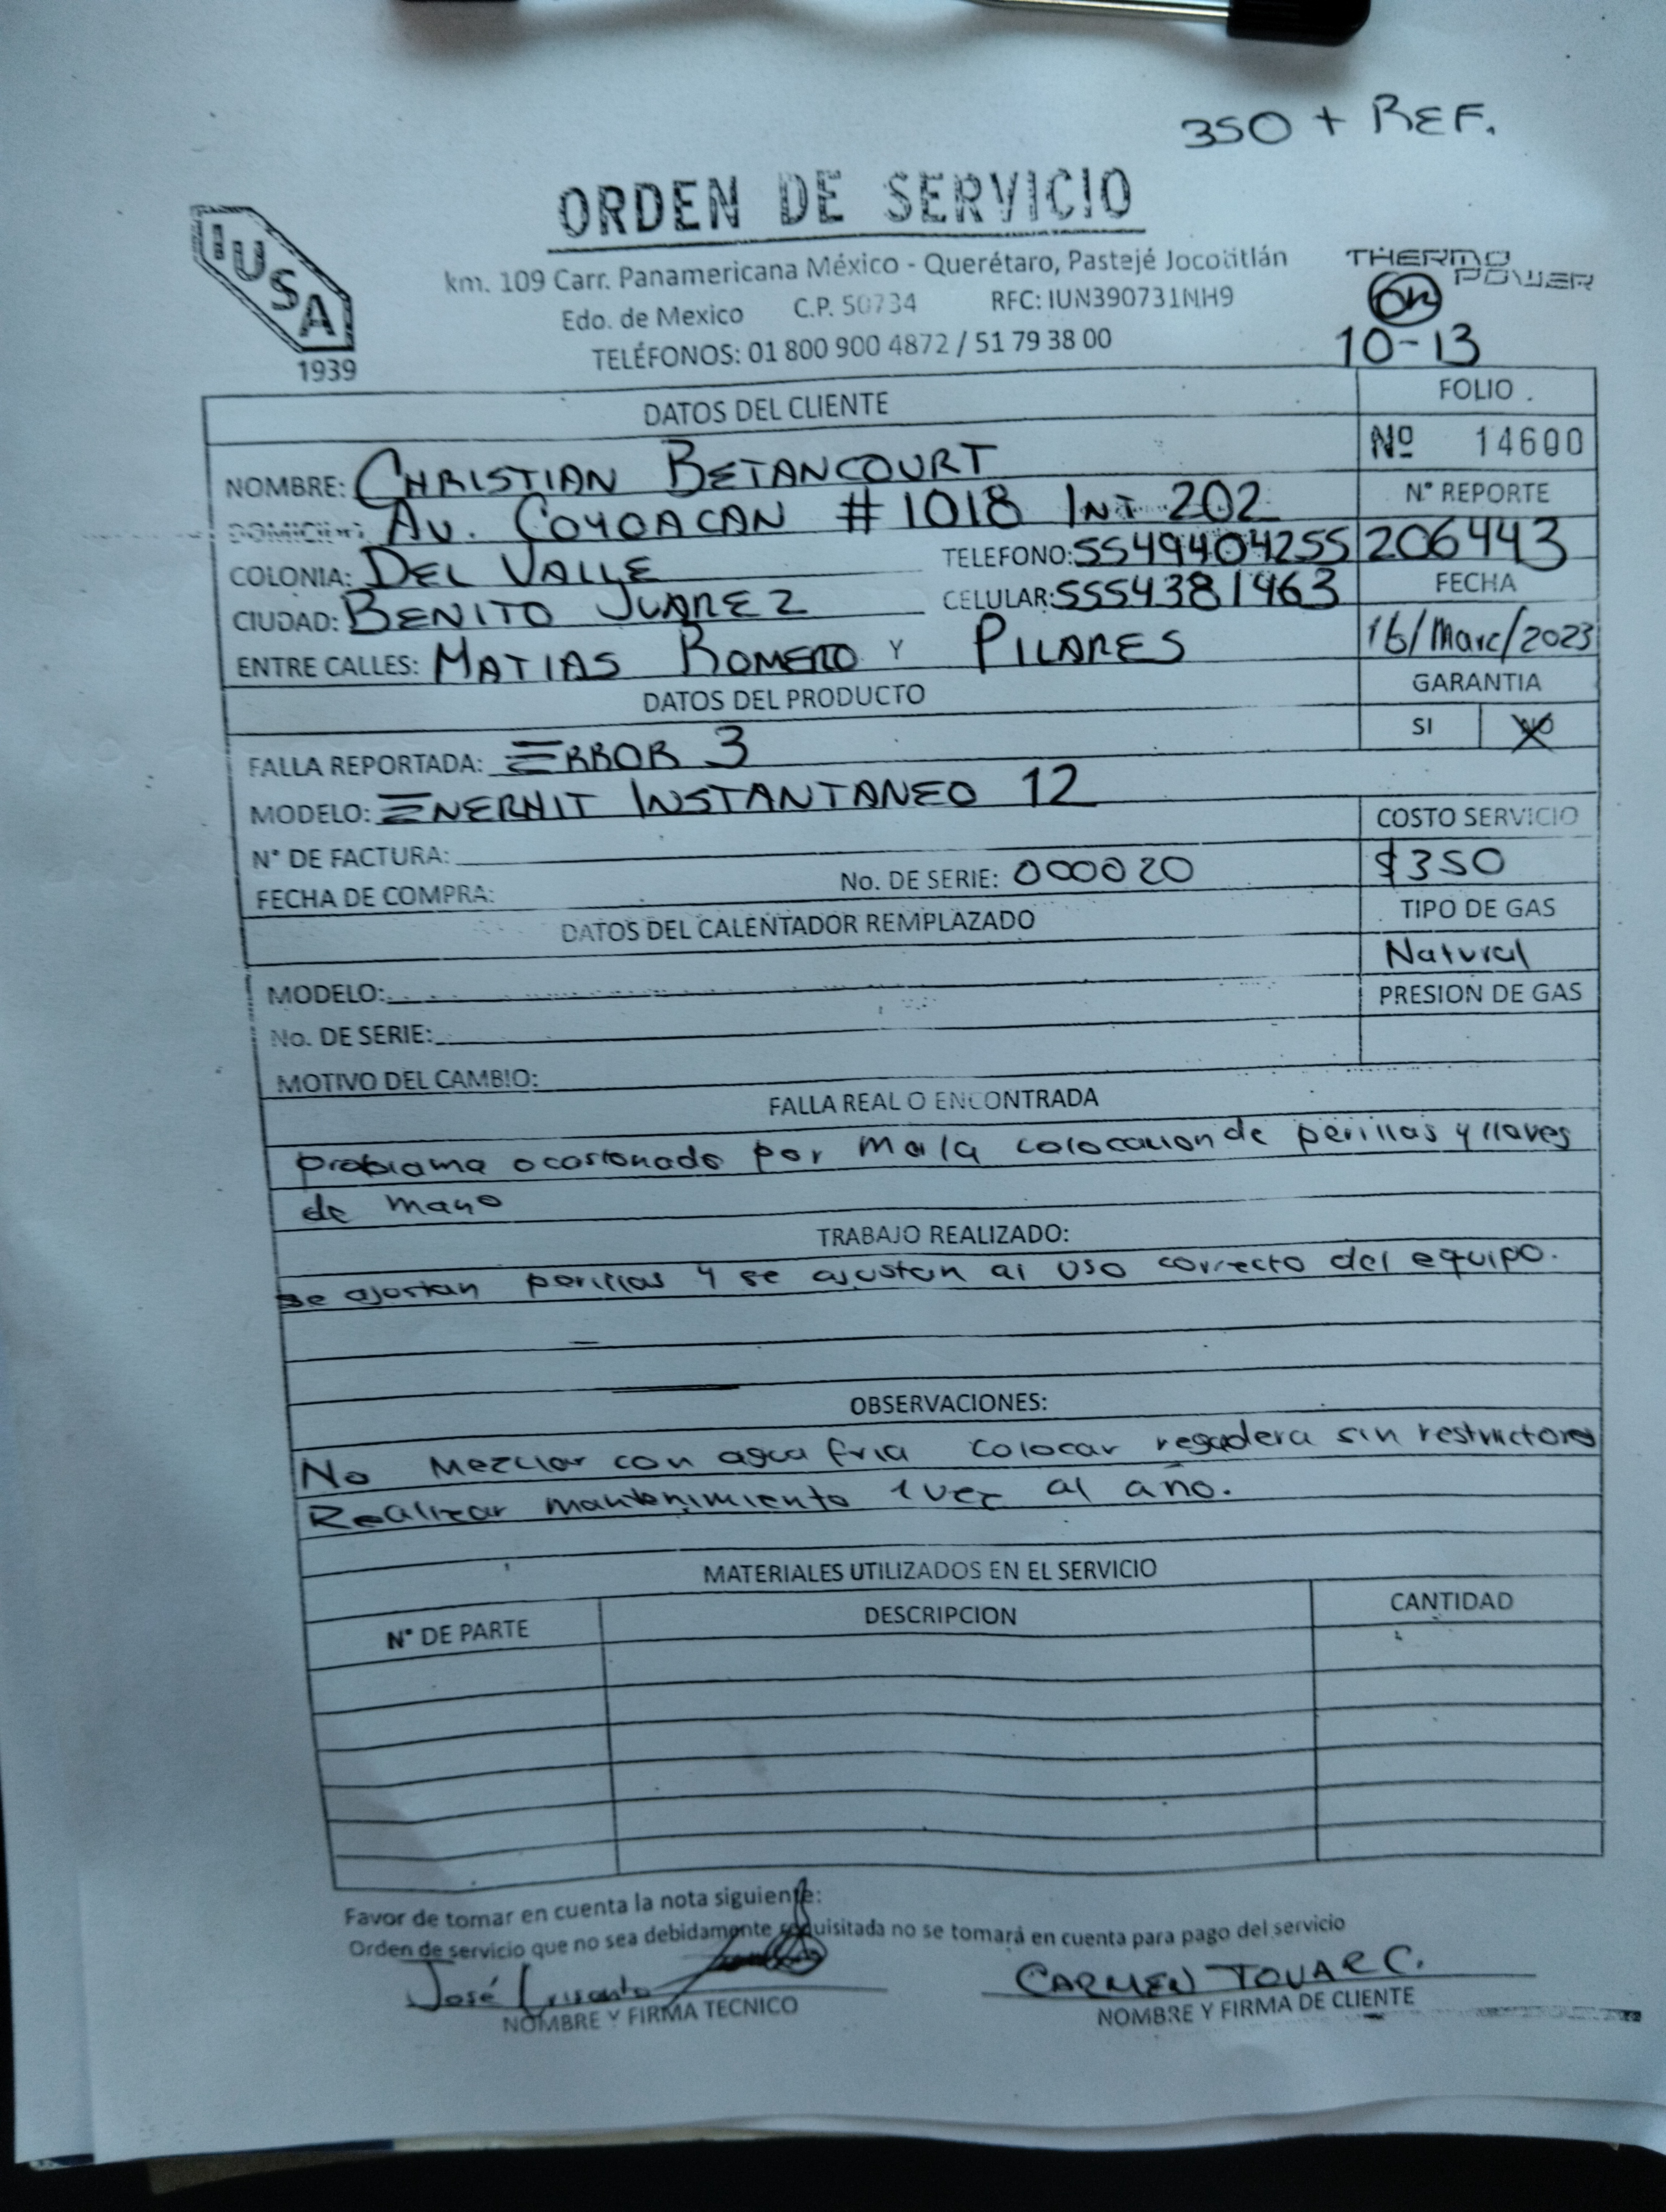 350 + REF.
ORDEN DE SERVICIO
IUSA
1939
km. 109 Carr. Panamericana México - Querétaro, Pastejé Jocotitlán
Edo. de Mexico C.P. 50734 RFC: IUN390731NH9
TELÉFONOS: 01 800 900 4872 / 51 79 38 00
THERMO POWER
10-13
DATOS DEL CLIENTE
FOLIO
Nº 14600
NOMBRE: CHRISTIAN BETANCOURT
N° REPORTE
DOMICILIO: AV. COYOACAN #1018 INT 202
206443
COLONIA: DEL VALLE TELEFONO: 5549404255
FECHA
CIUDAD: BENITO JUAREZ CELULAR: 5554381463
16/Marc/2023
ENTRE CALLES: MATIAS ROMERO Y PILARES
GARANTIA
DATOS DEL PRODUCTO
SI NO
FALLA REPORTADA: ERROR 3
MODELO: ENERHIT INSTANTANEO 12
COSTO SERVICIO
N° DE FACTURA:
$350
FECHA DE COMPRA: No. DE SERIE: 000020
TIPO DE GAS
DATOS DEL CALENTADOR REMPLAZADO
Natural
MODELO:
PRESION DE GAS
No. DE SERIE:
MOTIVO DEL CAMBIO:
FALLA REAL O ENCONTRADA
problama ocasionado por mala colocacion de perillas y llaves
de mano
TRABAJO REALIZADO:
se ajustan perillas y se ajustan al uso correcto del equipo.
OBSERVACIONES:
No Mezclar con agua fria colocar regadera sin restrictores
Realizar mantenimiento 1 vez al año.
MATERIALES UTILIZADOS EN EL SERVICIO
N° DE PARTE DESCRIPCION CANTIDAD
Favor de tomar en cuenta la nota siguiente:
Orden de servicio que no sea debidamente requisitada no se tomará en cuenta para pago del servicio
José Crisanto CARMEN TOVAR C.
NOMBRE Y FIRMA TECNICO NOMBRE Y FIRMA DE CLIENTE